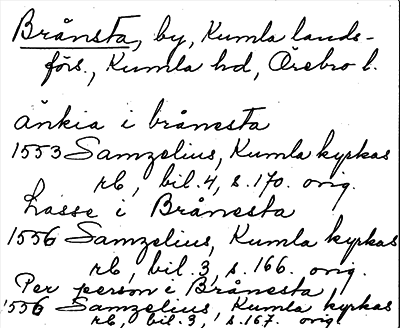 Brånsta, by, Kumla lands-
förs., Kumla hd, Örebro l.
änkia i brånesta
1553 Samzelius, Kumla kyrkas
rb, bil. 4, s. 170. orig.
Lasse i Brånesta
1556 Samzelius, Kumla kyrkas
rb, bil. 3, s. 166. orig.
Per person i Brånesta
1556 Samzelius, Kumla kyrkas
rb, bil. 3, s. 167. orig.